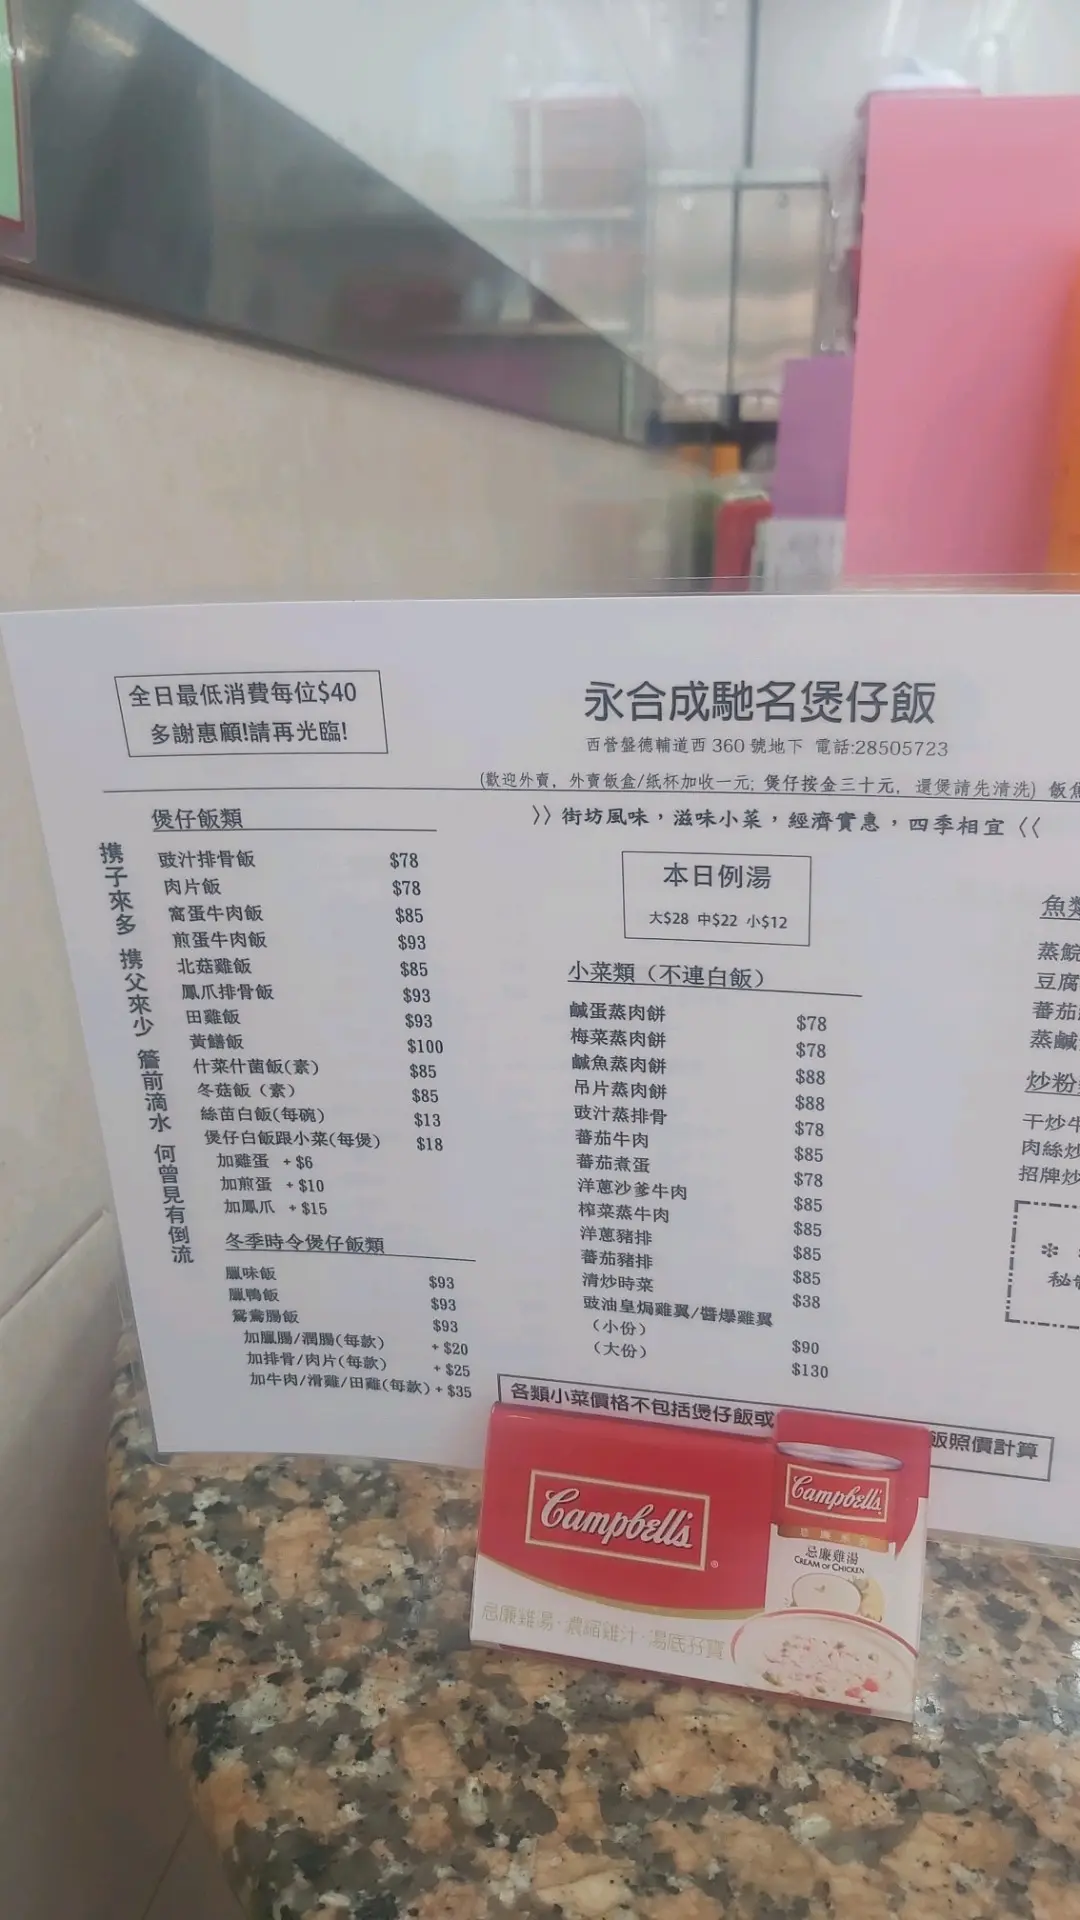 全日最低消費每位$40
多謝惠顧!請再光臨!
永合成馳名煲仔飯
西營盤德輔道西 360 號地下 電話:28505723
(歡迎外賣，外賣飯盒/紙杯加收一元; 煲仔按金三十元，還煲請先清洗) 飯焦
》街坊風味，滋味小菜，經濟實惠，四季相宜《
携子來多 携父來少 簷前滴水 何曾見有倒流
煲仔飯類
豉汁排骨飯 $78
肉片飯 $78
窩蛋牛肉飯 $85
煎蛋牛肉飯 $93
北菇雞飯 $85
鳳爪排骨飯 $93
田雞飯 $93
黃鱔飯 $100
什菜什菌飯(素) $85
冬菇飯（素） $85
絲苗白飯(每碗) $13
煲仔白飯跟小菜(每煲) $18
加雞蛋 +$6
加煎蛋 +$10
加鳳爪 +$15
冬季時令煲仔飯類
臘味飯 $93
臘鴨飯 $93
鴛鴦腸飯 $93
加臘腸/潤腸(每款) +$20
加排骨/肉片(每款) +$25
加牛肉/滑雞/田雞(每款) +$35
本日例湯
大$28 中$22 小$12
小菜類（不連白飯）
鹹蛋蒸肉餅 $78
梅菜蒸肉餅 $78
鹹魚蒸肉餅 $88
吊片蒸肉餅 $88
豉汁蒸排骨 $78
蕃茄牛肉 $85
蕃茄煮蛋 $78
洋蔥沙爹牛肉 $85
榨菜蒸牛肉 $85
洋蔥豬排 $85
蕃茄豬排 $85
清炒時菜 $38
豉油皇焗雞翼/醬爆雞翼
（小份） $90
（大份） $130
魚類
蒸鯇
豆腐
蕃茄
蒸鹹
炒粉
干炒牛
肉絲炒
招牌炒
*
秘
各類小菜價格不包括煲仔飯或
飯照價計算
Campbell's
忌廉雞湯·濃縮雞汁·湯底孖寶
Campbell's
忌廉雞湯
CREAM OF CHICKEN